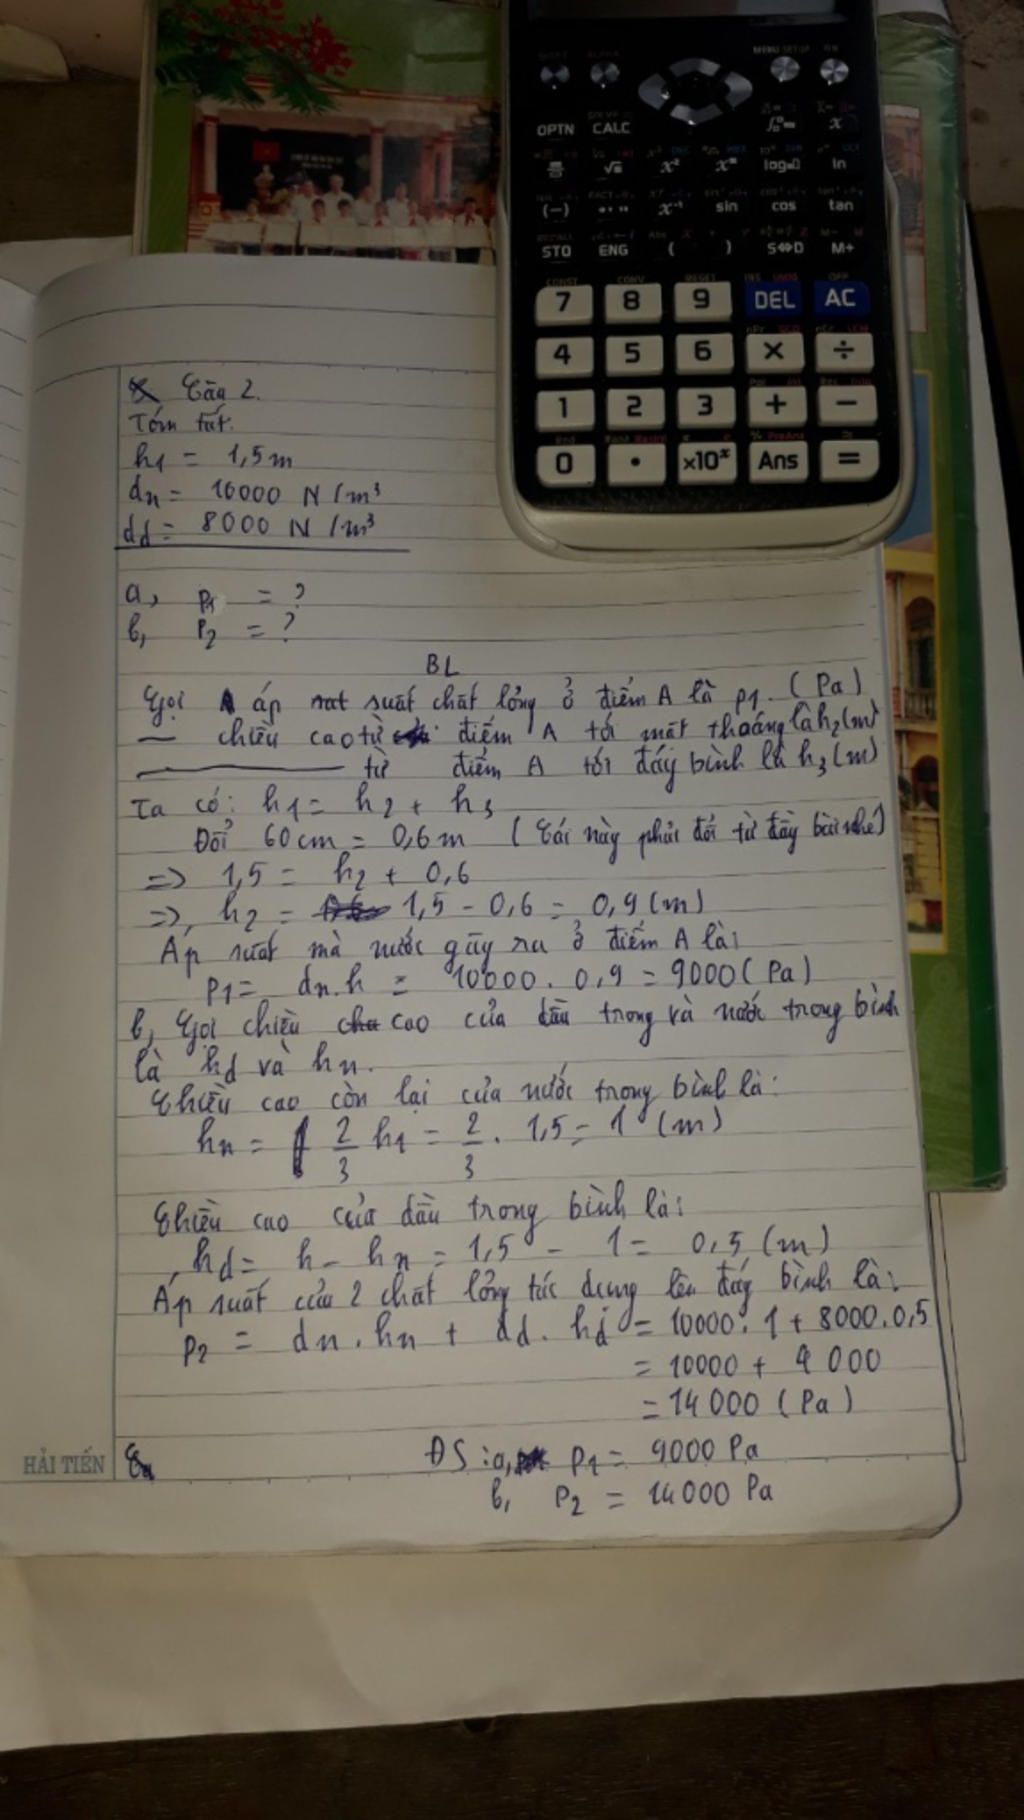 OPTN CALC
x² log ln
(-) x⁻¹ sin cos tan
STO ENG ( ) S⇔D M+
7 8 9 DEL AC
4 5 6 × ÷
1 2 3 + −
0 . ×10ˣ Ans =
Câu 2.
Tóm tắt.
h₁ = 1,5m
dn = 10000 N/m³
dd = 8000 N/m³
a, p₁ = ?
b, p₂ = ?
BL
Gọi áp suất chất lỏng ở điểm A là p₁. (Pa)
— chiều cao từ điểm A tới mặt thoáng là h₂(m)
——— từ điểm A tới đáy bình là h₃(m)
Ta có: h₁ = h₂ + h₃
Đổi 60cm = 0,6m (Cái này phải đổi từ đầy bài nhé)
=> 1,5 = h₂ + 0,6
=> h₂ = 1,5 - 0,6 = 0,9(m)
Áp suất mà nước gây ra ở điểm A là:
p₁ = dn.h = 10000. 0,9 = 9000(Pa)
b, Gọi chiều cao của dầu trong và nước trong bình
là hd và hn.
Chiều cao còn lại của nước trong bình là:
hn = 2/3 h₁ = 2/3 . 1,5 = 1 (m)
Chiều cao của dầu trong bình là:
hd = h - hn = 1,5 - 1 = 0,5 (m)
Áp suất của 2 chất lỏng tác dụng lên đáy bình là:
p₂ = dn.hn + dd.hd = 10000. 1 + 8000.0,5
= 10000 + 4000
= 14000 (Pa)
ĐS: a, p₁ = 9000 Pa
b, p₂ = 14000 Pa
HẢI TIẾN